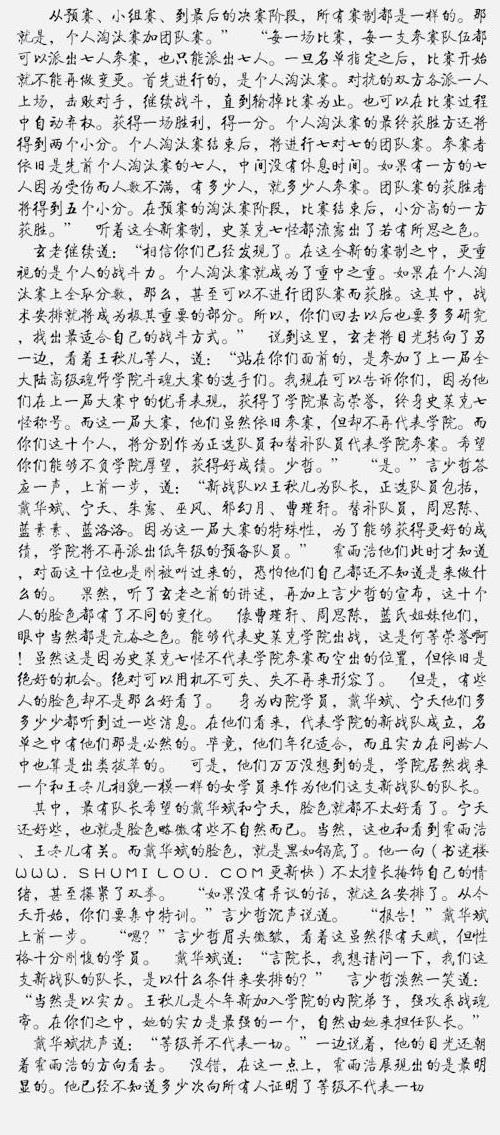 从预赛、小组赛、到最后的决赛阶段，所有赛制都是一样的。那
就是，个人淘汰赛加团队赛。” “每一场比赛，每一支参赛队伍都
可以派出七人参赛，也只能派出七人。一旦名单指定之后，比赛开始
就不能再做变更。首先进行的，是个人淘汰赛。对抗的双方各派一人
上场，击败对手，继续战斗，直到输掉比赛为止。也可以在比赛过程
中自动弃权。获得一场胜利，得一分。个人淘汰赛的最终获胜方还将
得到两个小分。个人淘汰赛结束后，将进行七对七的团队赛。参赛者
依旧是先前个人淘汰赛的七人，中间没有休息时间。如果有一方的七
人因为受伤而人数不满，有多少人，就多少人参赛。团队赛的获胜者
将得到五个小分。在预赛的淘汰赛阶段，比赛结束后，小分高的一方
获胜。” 听着这全新赛制，史莱克七怪都流露出了若有所思之色。
玄老继续道：“相信你们已经发现了。在这全新的赛制之中，更重
视的是个人的战斗力。个人淘汰赛就成为了重中之重。如果在个人淘
汰赛上全取分数，那么，甚至可以不进行团队赛而获胜。这其中，战
术安排就将成为极其重要的部分。所以，你们回去以后也要多多研究
，找出最适合自己的战斗方式。” 说到这里，玄老将目光转向了另
一边，看着王秋儿等人，道：“站在你们面前的，是参加了上一届全
大陆高级魂师学院斗魂大赛的选手们。我现在可以告诉你们，因为他
们在上一届大赛中的优异表现，获得了学院最高荣誉，终身史莱克七
怪称号。而这一届大赛，他们虽然依旧参赛，但却不再代表学院。而
你们这十个人，将分别作为正选队员和替补队员代表学院参赛。希望
你们能够不负学院厚望，获得好成绩。少哲。” “是。”言少哲答
应一声，上前一步，道：“新战队以王秋儿为队长，正选队员包括，
戴华斌、宁天、朱露、巫风、邪幻月、曹瑾轩。替补队员，周思陈、
蓝素素、蓝洛洛。因为这一届大赛的特殊性，为了能够获得更好的成
绩，学院将不再派出低年级的预备队员。” 霍雨浩他们此时才知道
，对面这十位也是刚被叫过来的，恐怕他们自己都还不知道是来做什
么的。 果然，听了玄老之前的讲述，再加上言少哲的宣布，这十个
人的脸色都有了不同的变化。 像曹瑾轩、周思陈，蓝氏姐妹他们，
眼中当然都是亢奋之色。能够代表史莱克学院出战，这是何等荣誉啊
！虽然这是因为史莱克七怪不代表学院参赛而空出的位置，但依旧是
绝好的机会。绝对可以用机不可失、失不再来形容了。 但是，有些
人的脸色却不是那么好看了。 身为内院学员，戴华斌、宁天他们多
多少少都听到过一些消息。在他们看来，代表学院的新战队成立，名
单之中有他们那是必然的。毕竟，他们年纪适合，而且实力在同龄人
中也算是出类拔萃的。 可是，他们万万没想到的是，学院居然找来
一个和王冬儿相貌一模一样的女学员来作为他们这支新战队的队长。
其中，最有队长希望的戴华斌和宁天，脸色就都不太好看了。宁天
还好些，也就是脸色略微有些不自然而已。当然，这也和看到霍雨浩
、王冬儿有关。而戴华斌的脸色，就是黑如锅底了。他一向（书迷楼
WWW．SHUMILOU．COM更新快）不太擅长掩饰自己的情
绪，甚至攥紧了双拳。 “如果没有异议的话，就这么安排了。从今
天开始，你们要集中特训。”言少哲沉声说道。 “报告！”戴华斌
上前一步。 “嗯？”言少哲眉头微皱，看着这虽然很有天赋，但性
格十分刚愎的学员。 戴华斌道：“言院长，我想请问一下，我们这
支新战队的队长，是以什么条件来安排的？” 言少哲淡然一笑道：
“当然是以实力。王秋儿是今年新加入学院的内院弟子，强攻系战魂
帝。在你们之中，她的实力是最强的一个，自然由她来担任队长。”
戴华斌抗声道：“等级并不代表一切。”一边说着，他的目光还朝
着霍雨浩的方向看去。 没错，在这一点上，霍雨浩展现出的是最明
显的。他已经不知道多少次向所有人证明了等级不代表一切